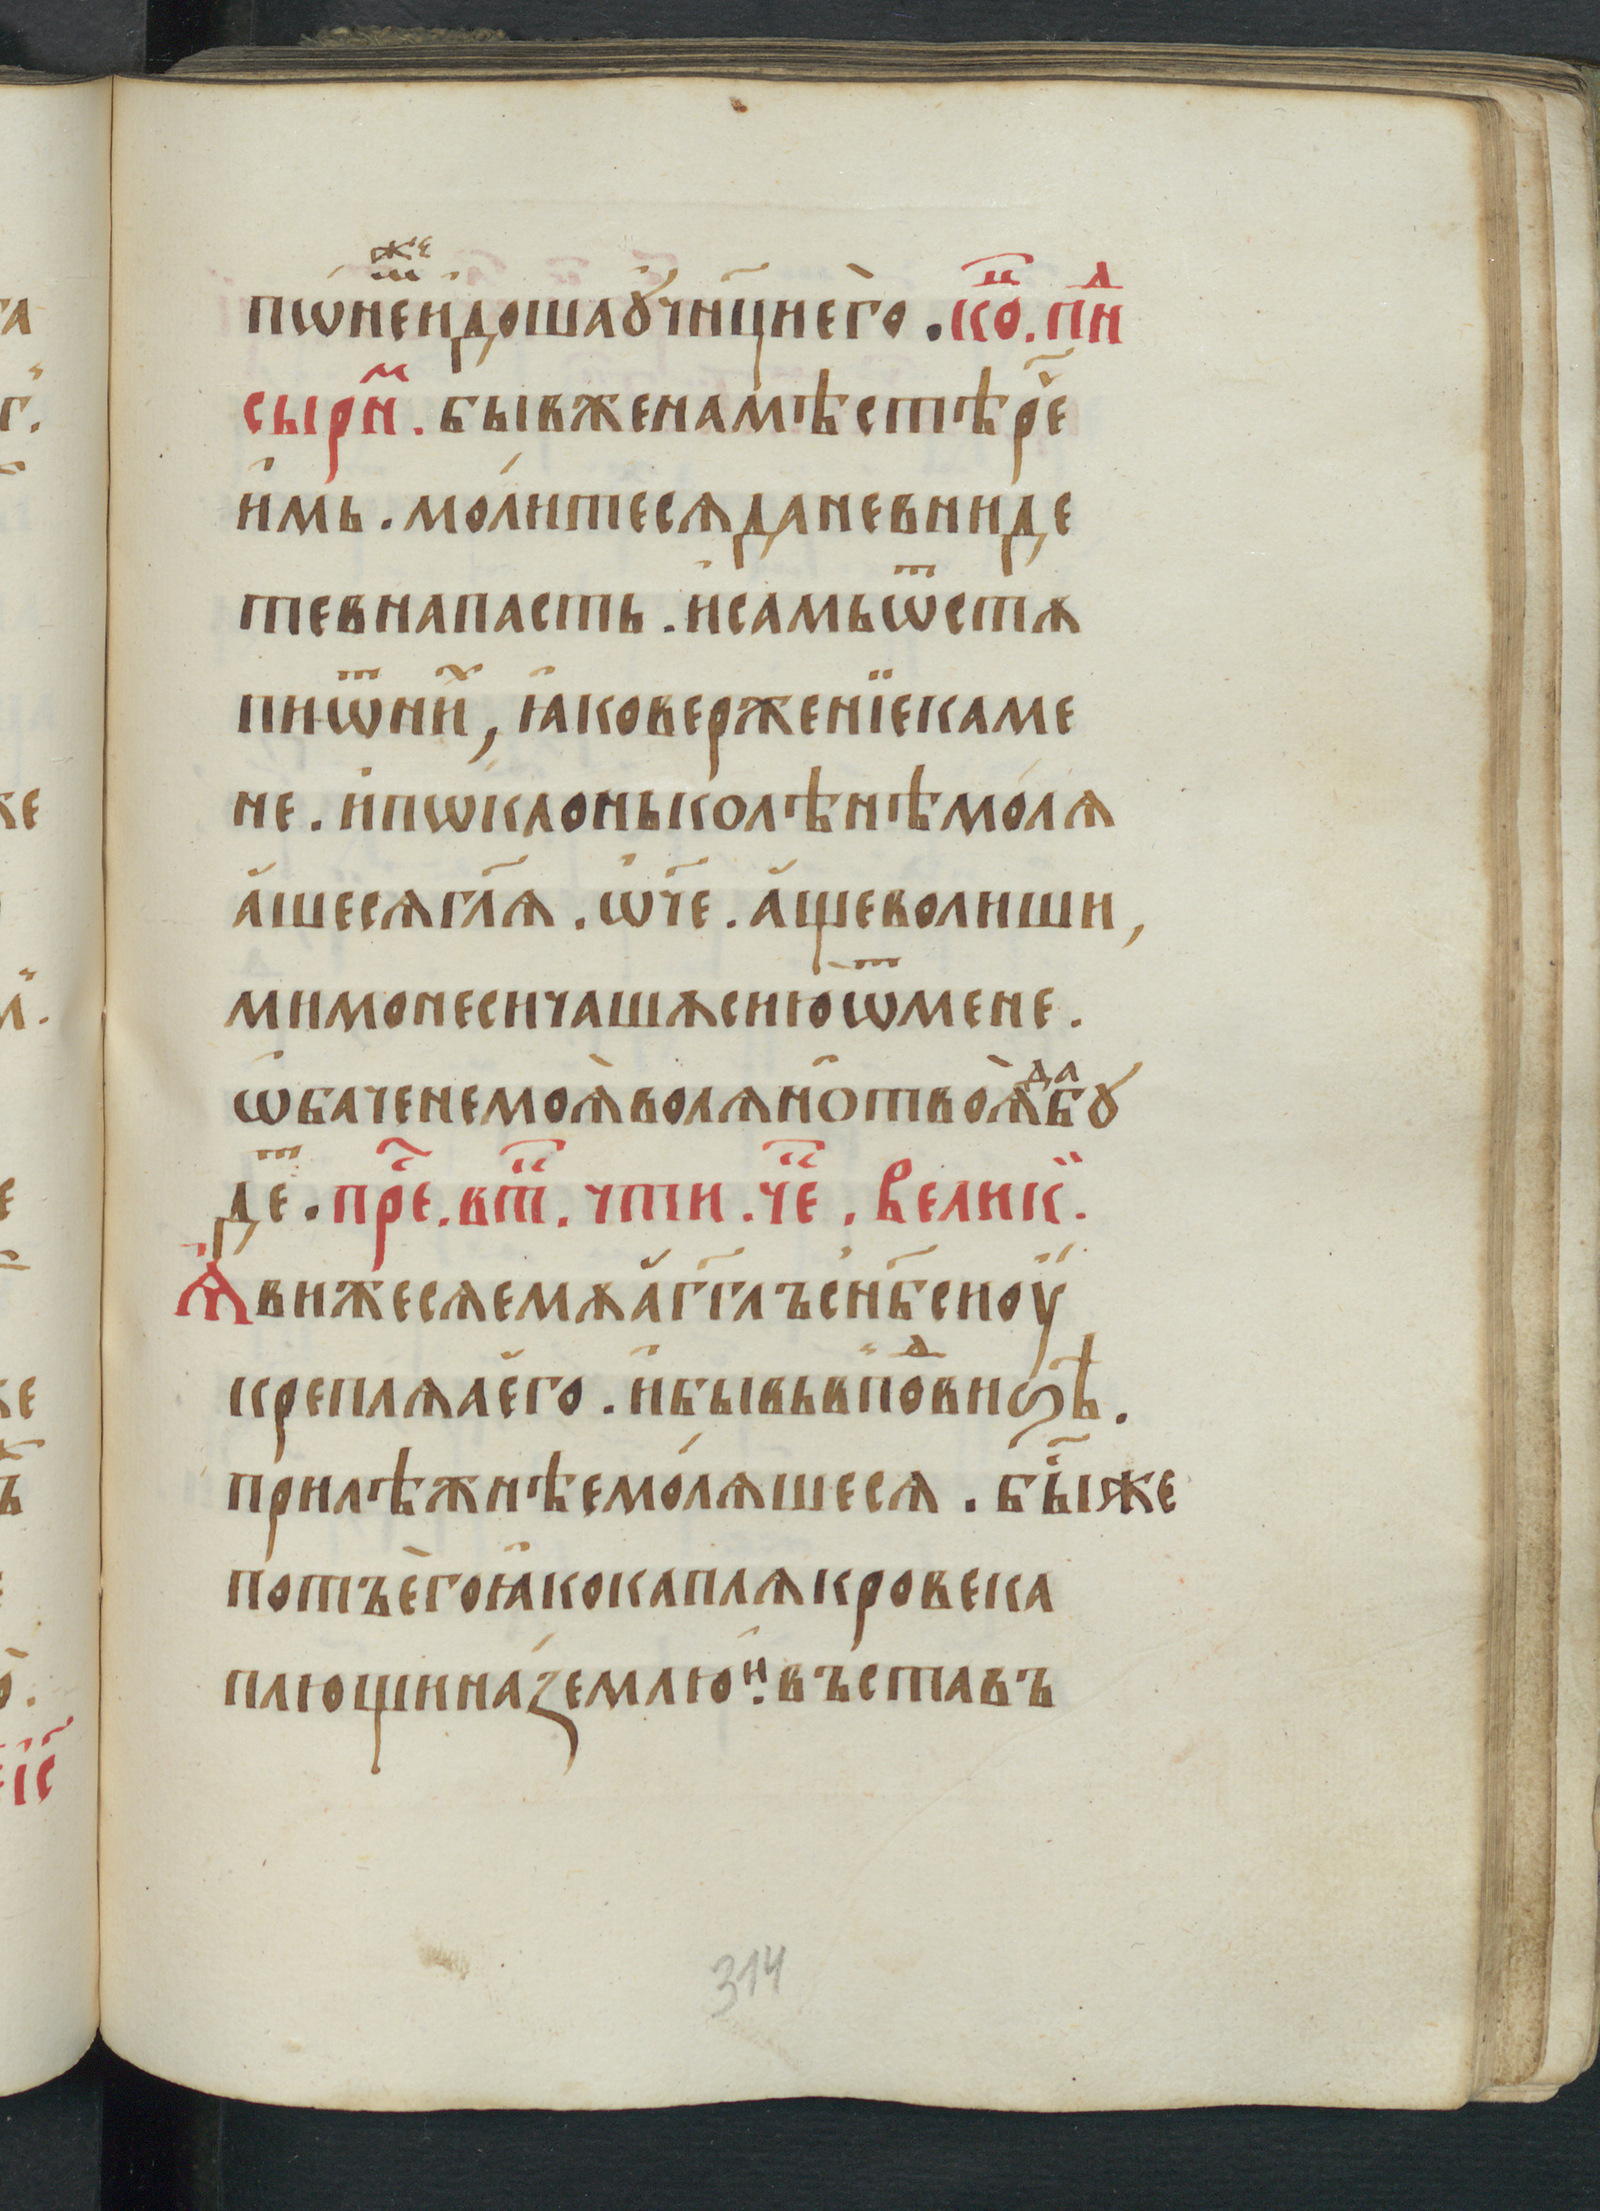 пѡнеⷨ҇же и҆доша ᲂу҆чн҃цы е҆го̀ . коⷰ҇ . пнⷣ
сырнⷨ . бывже на мѣстѣ рⷱ҇е
и҆мь . моли́теся да не вниде
те в напасть . и҆ самь ѿстѫ
пи ѿ ниⷯ , ꙗ҆ко верженїе каме
не . и҆ пѡклонь колѣнѣ мо́лѧ
а҆шеся гл҃ѧ . ѡ҆ч҃е . а҆ще волиши ,
мимо неси чашѫ сию ѿ мене .
ѡ҆баче не моѧ̀ волѧ но̑ твоѧ̀ да бꙋ
деⷮ . преⷭ҇ . вⷮ . чти . чеⷮ . велик̈ .
Ꙗ҆виже сѧ емѫ а҆гг҃лъ с нб҃си ᲂу҆
креплѧа е҆го . и҆ бывь в поⷣвиѕѣ .
прилѣжнѣе мо́лѧшесѧ . быⷭ҇ же
потъ е҆го̀ ꙗ҆ко каплѧ крове ка
плющи на́ землю . и въставъ
314